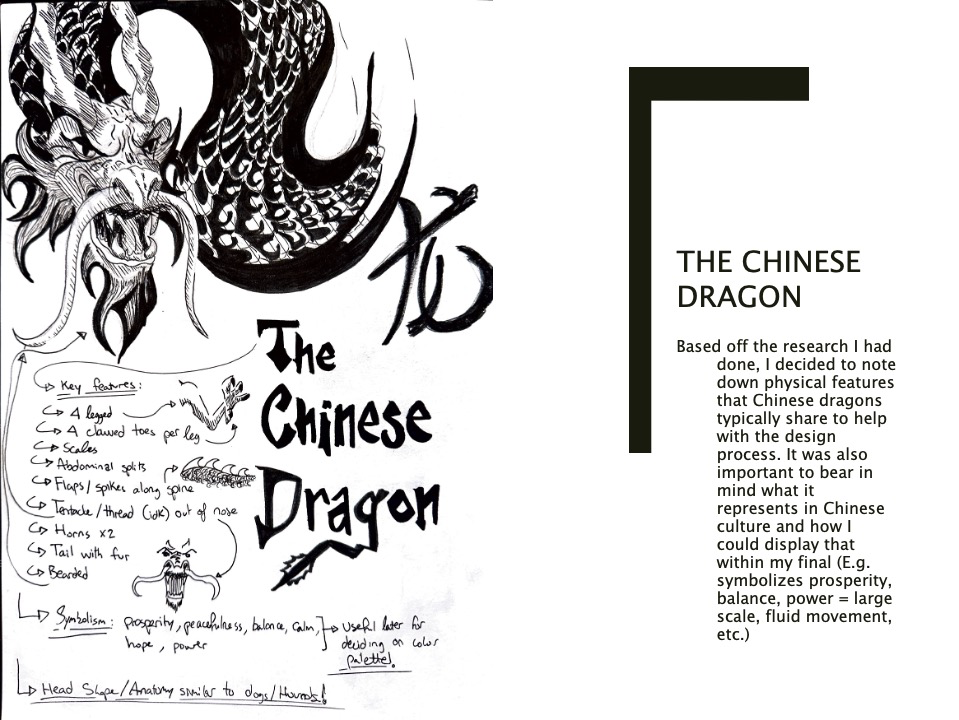 龙
The
Chinese
Dragon
Key features:
4 legged
4 clawed toes per leg
Scales
Abdominal splits
Flaps/spikes along spine
Tentacle/thread (idk) out of nose
Horns x2
Tail with fur
Bearded
Symbolism: prosperity, peacefulness, balance, calm,
hope, power
Useful later for
deciding on color
palette!
Head /Anatomy similar to dogs/Hounds!
THE CHINESE
DRAGON
Based off the research I had
done, I decided to note
down physical features
that Chinese dragons
typically share to help
with the design
process. It was also
important to bear in
mind what it
represents in Chinese
culture and how I
could display that
within my final (E.g.
symbolizes prosperity,
balance, power = large
scale, fluid movement,
etc.)